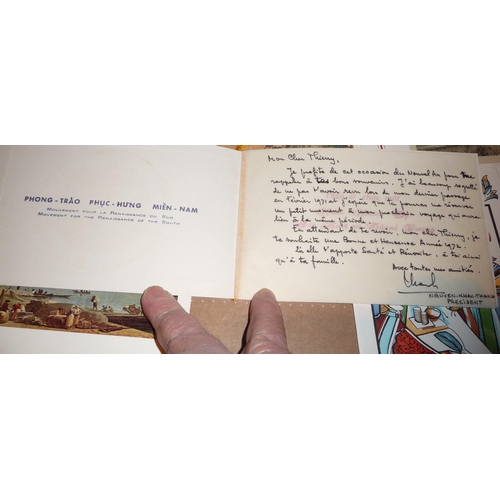 PHONG-TRÀO PHỤC-HƯNG MIỀN-NAM
MOUVEMENT POUR LA RENAISSANCE DU SUD
MOVEMENT FOR THE RENAISSANCE OF THE SOUTH
Mon Cher Thierry,
Je profite de cet occasion du Nouvel An pour me
rappeler à tes bons souvenirs. J'ai beaucoup regretté
de ne pas t'avoir revu lors de mon dernier passage
en février 1971 et j'espère que tu pourras me réserver
un petit moment à mon prochain voyage qui aura
lieu à la même période.
En attendant de te revoir, mon cher Thierry, je
te souhaite une Bonne et Heureuse Année 1972.
qu'elle t'apporte Santé et Réussite, à toi ainsi
qu'à ta famille.
Avec toutes mes amitiés
NGUYEN-KHAC-THANH
PRESIDENT